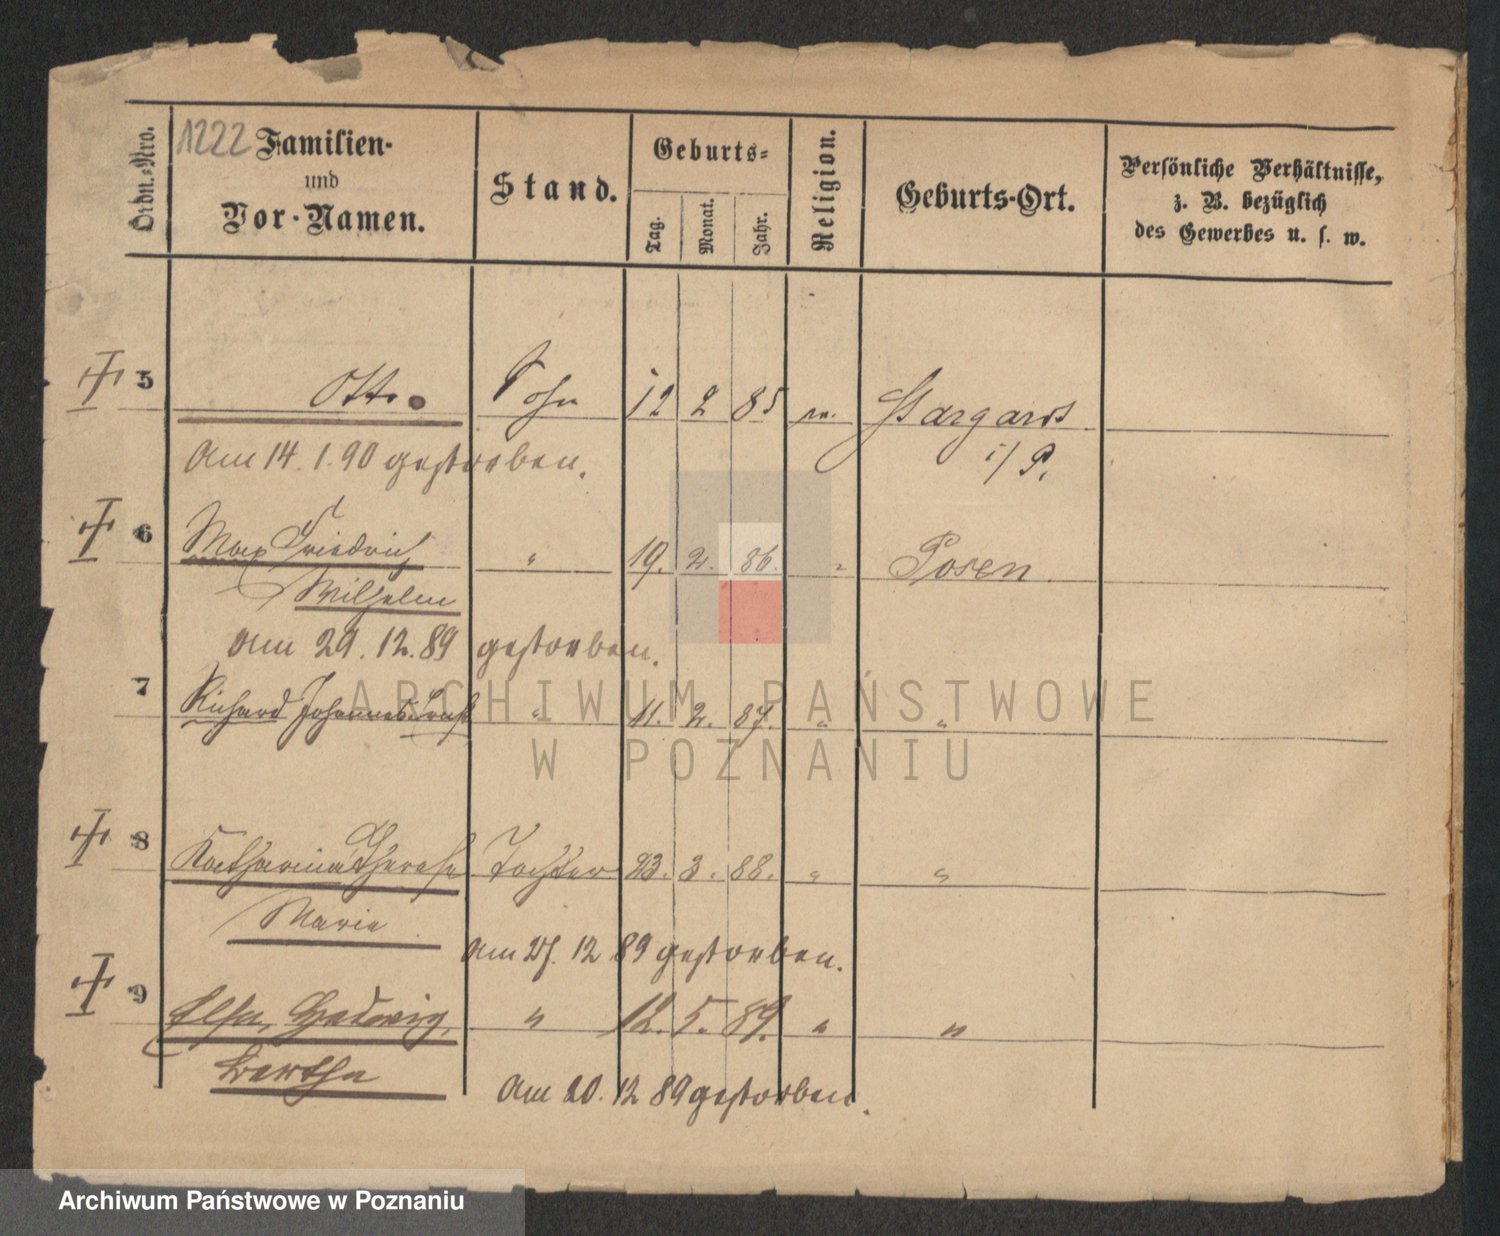 1222
Ordn.-Nro.
Familien-
und
Vor-Namen.
Stand.
Geburts-
Tag.
Monat.
Jahr.
Religion.
Geburts-Ort.
Persönliche Verhältnisse,
z. B. bezüglich
des Gewerbes u. s. w.
5 Otto Sohn 12 2 85 ev. Stargard
i/P.
Am 14.1.90 gestorben.
6 Max Friedrich " 19. 2. 86. " Posen
Wilhelm
Am 29.12.89 gestorben.
7 Richard Johannes Ernst " 11. 2. 87. " "
8 Katharina Therese Tochter 23. 3. 88. " "
Marie
Am 25. 12 89 gestorben.
9 Elsa, Hedwig, " 12. 5. 89. " "
Bertha
Am 20. 12 89 gestorben.
ARCHIWUM PAŃSTWOWE
W POZNANIU
Archiwum Państwowe w Poznaniu